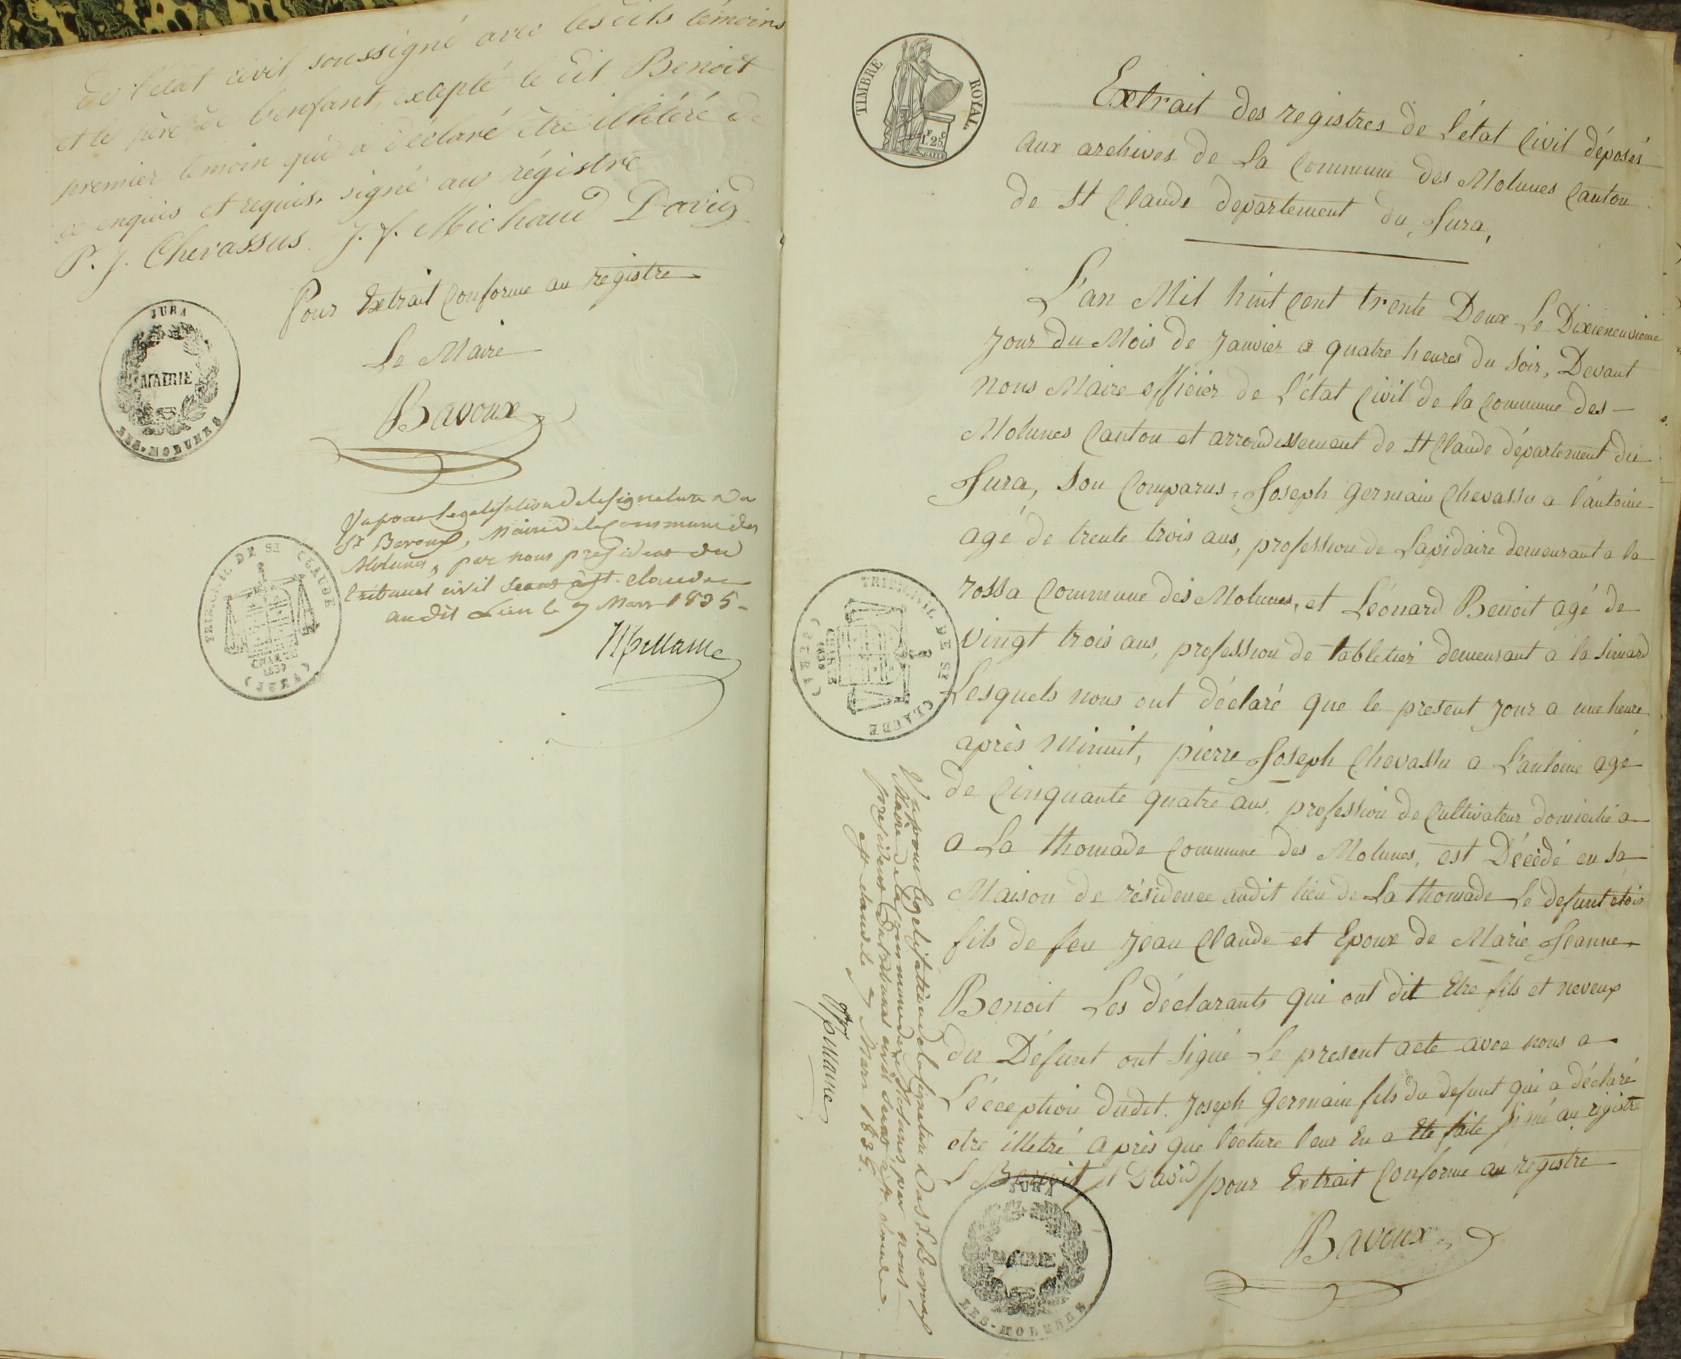 de l'état civil soussigné avec lesdits témoins
et le père de l'enfant, exepté le dit Benoit
premier temoin qui a déclaré être illitéré de
ce enquis et requis. signé aux régistre
P. J. Chevassus. J. f. Michaud David
Pour Extrait Conforme au registre
Le Maire
Bavoux
JURA
MAIRIE
LES-MOLUNES
Vu pour legalisation de la signature du
Sr Bavoux, Maire de la Commune des
Molunes, par nous president du
tribunal civil seant à St. Claude
audit Lieu le 7 Mars 1835
TRIBUNAL DE St CLAUDE
CHARTE
1830
(JURA)
TIMBRE ROYAL
1F 25C
Extrait des registres de l'état Civil déposés
aux archives de la Commune des Molunes Canton
de St Claude departement du Jura,
L'an Mil huit Cent trente Deux Le Dixieneuvieme
Jour du Mois de Janvier a quatre heures du Soir, Devant
nous Maire officier de l'état Civil de la Commune des
Molunes Canton et arrondissement de St Claude département du
Jura, Son Comparus, Joseph Germain Chevassu a l'antoine
agé de trente trois ans, profession de Lapidaire demeurant a la
rossa Commune des Molunes, et Léonard Benoit agé de
Vingt trois ans, profession de tabletier demeurant a la Simard
Lesquels nous ont déclaré que le present Jour a une heure
après Minuit, pierre Joseph Chevassu a L'antoine agé
de Cinquante quatre ans, profession de Cultivateur domicilié a
a La thomade Commune des Molunes, est Décédé en sa
Maison de résidence audit lieu de La thomade Le defunt étois
fils de feu Jean Claude et Epoux de Marie Jeanne
Benoit Les déclarants qui ont dit Etre fils et neveux
du Défunt ont Signé Le present acte avec nous a
L'éception dudit Joseph Germain fils du defunt qui a déclaré
etre illetré après que lecture leur En a Eté faite Signé au registre
L Benoit et David pour Extrait Conforme au registre
Bavoux
JURA
MAIRIE
LES-MOLUNES
TRIBUNAL DE St CLAUDE
CHARTE
1830
(JURA)
Vu pour legalisation de la signature du Sr Bavoux
Maire de la Commune des Molunes, par nous
president du tribunal civil seant à St. Claude
St claude 7 Mars 1835.